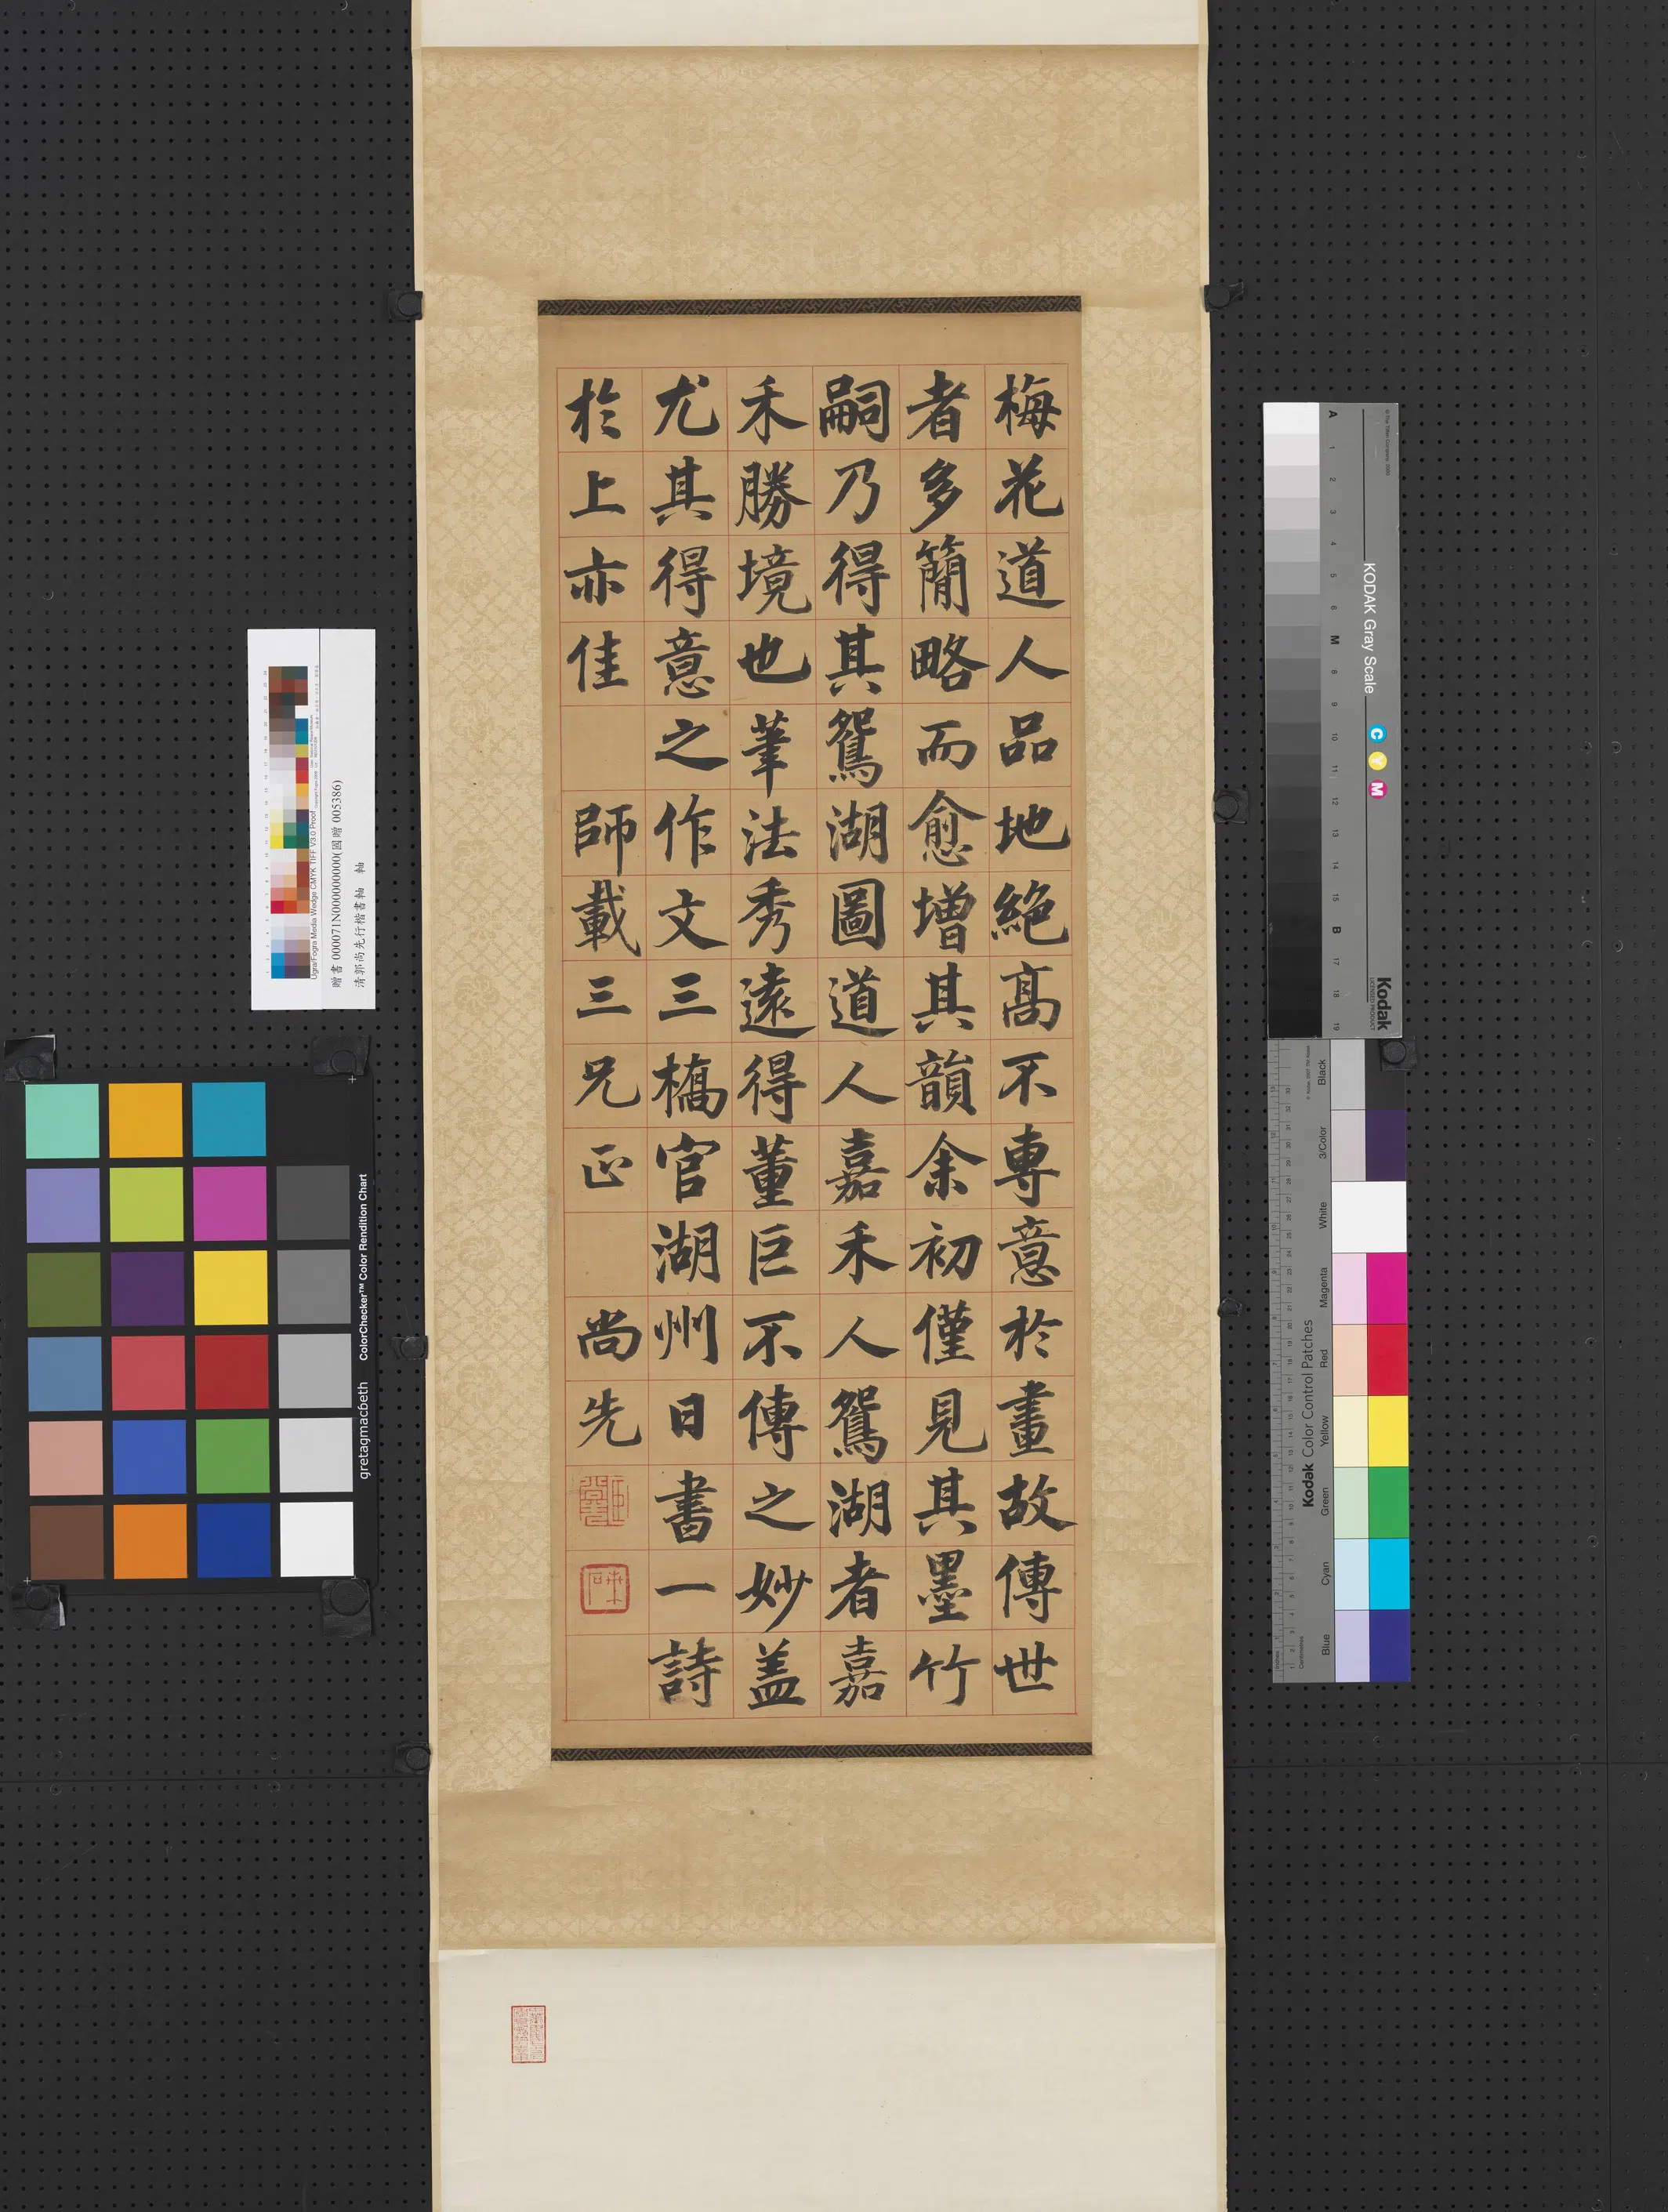 梅花道人品地絕高不專意於畫故傳世
者多簡略而愈增其韻余初僅見其墨竹
嗣乃得其鴛湖圖道人嘉禾人鴛湖者嘉
禾勝境也筆法秀遠得董巨不傳之妙盖
尤其得意之作文三橋官湖州日書一詩
於上亦佳 師載三兄正 尚先
贈書 000071N000000000(國贈 005386)
清郭尚先行楷書軸 軸
Ugra/Fogra Media Wedge CMYK TIFF V3.0 Proof
ColorChecker™ Color Rendition Chart
gretagmacbeth
KODAK Gray Scale
C Y M
Kodak
LICENSED PRODUCT
A 1 2 3 4 5 6 M 8 9 10 11 12 13 14 15 B 17 18 19
Kodak Color Control Patches
Blue Cyan Green Yellow Red Magenta White 3/Color Black